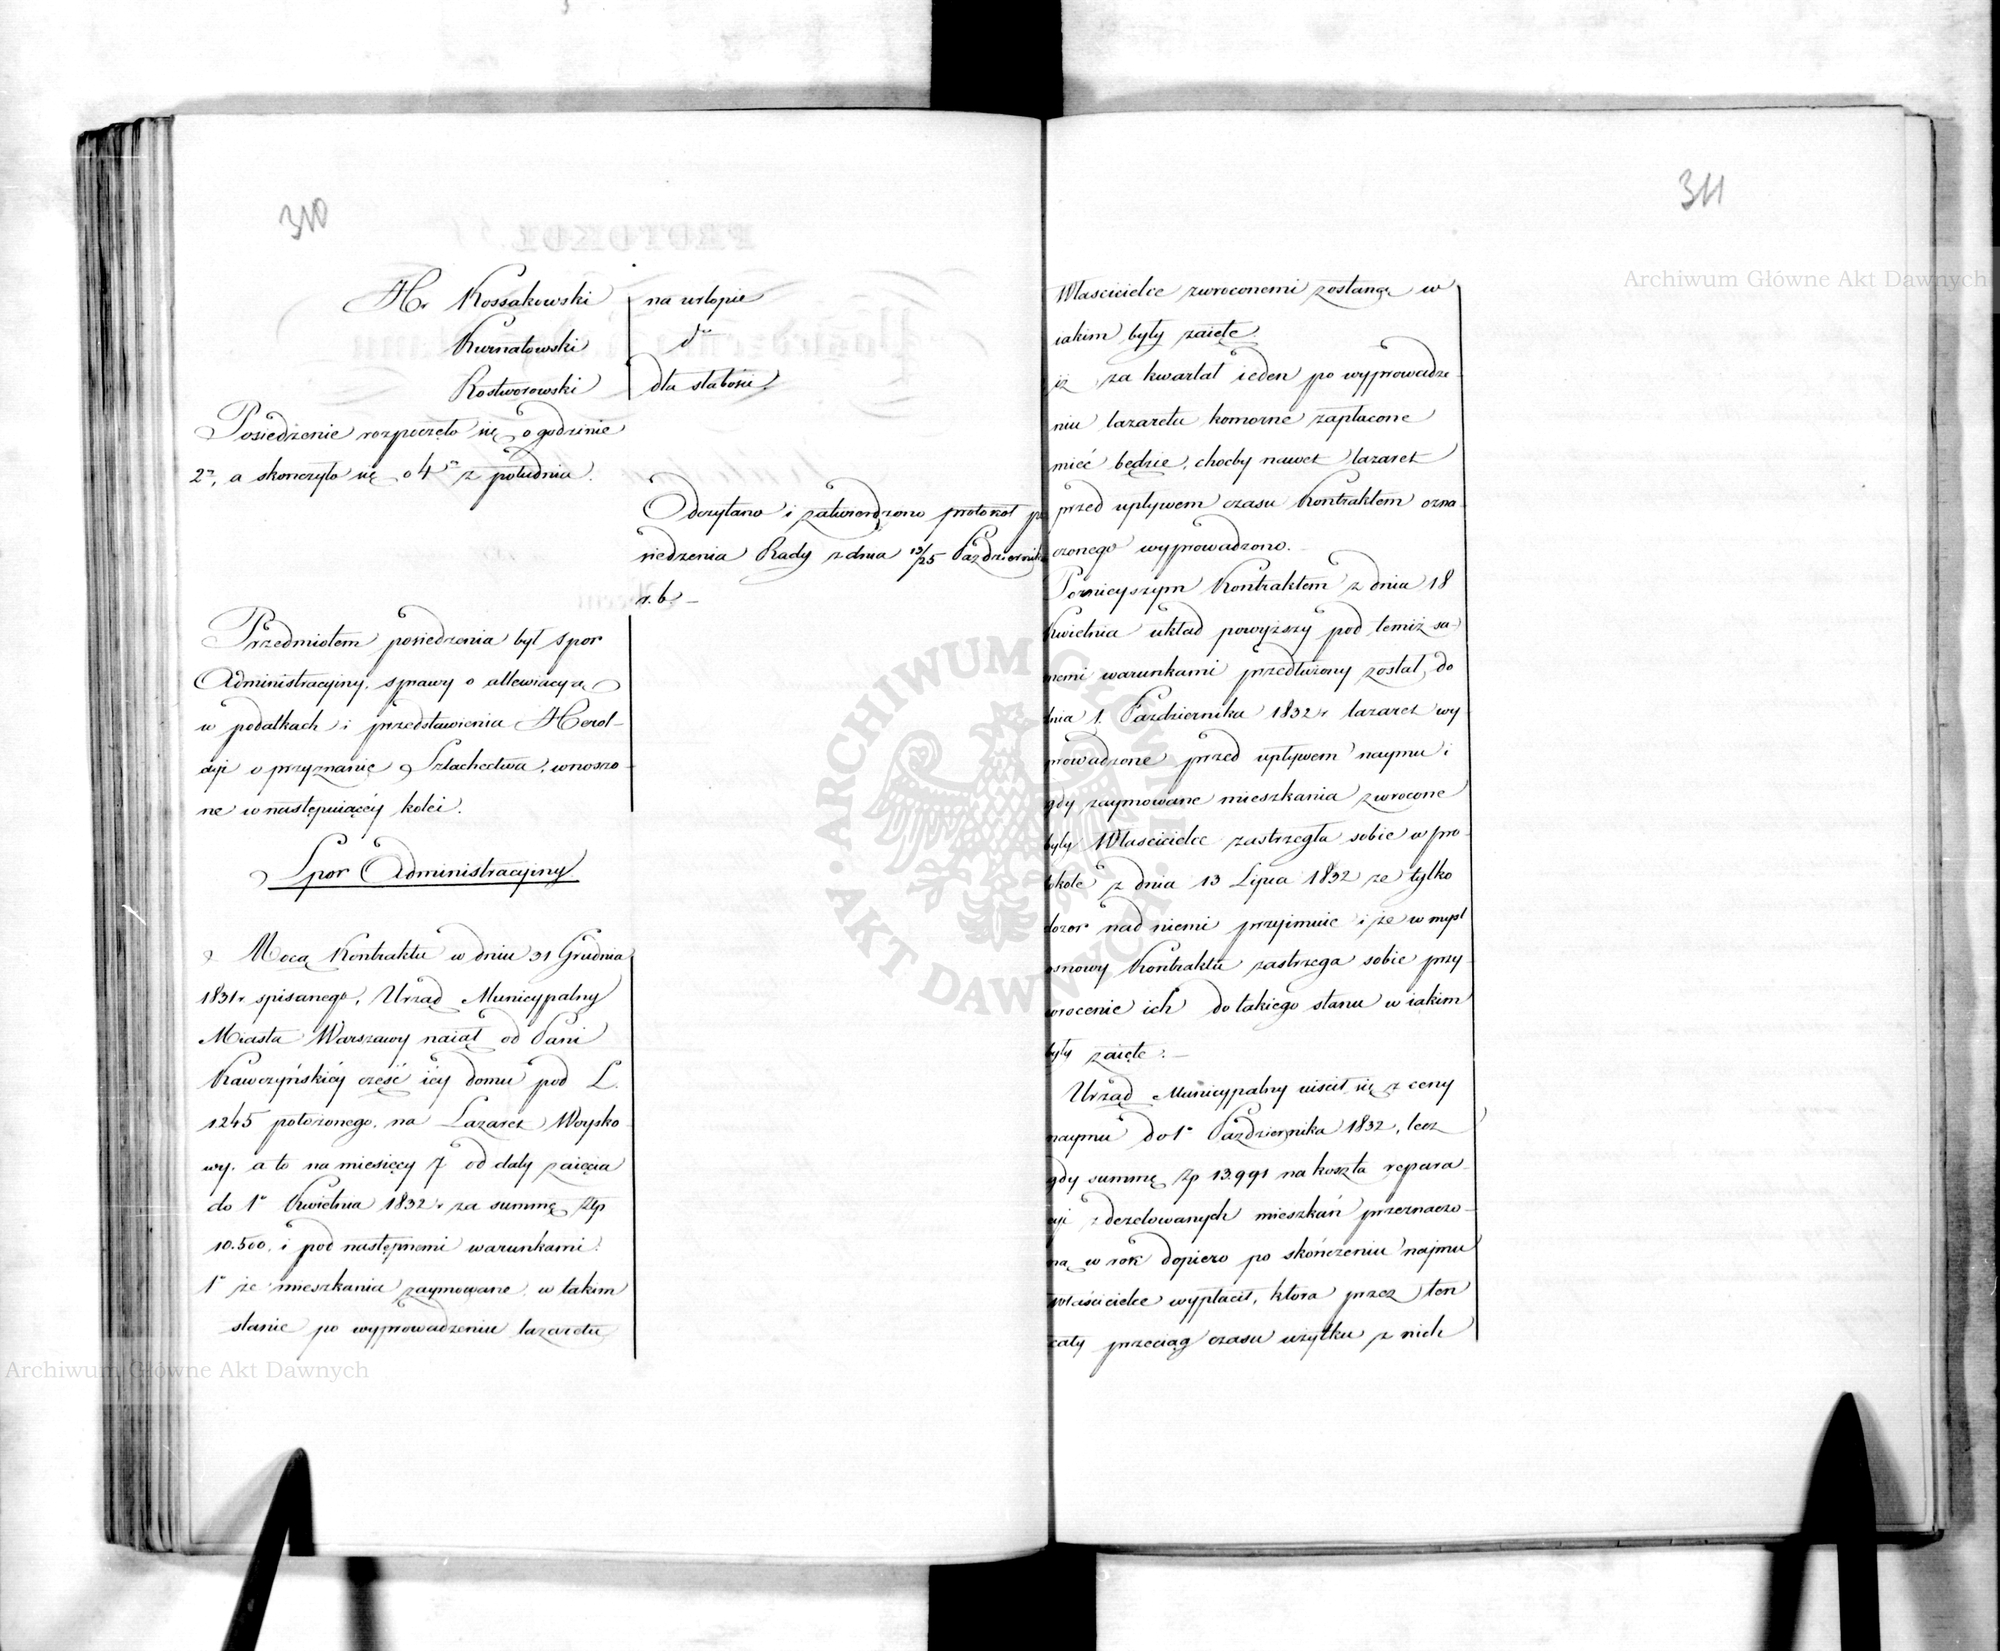 310
Hr. Kossakowski na urlopie
Kurnatowski dto
Rostworowski dla słabości
Posiedzenie rozpoczęło się o godzinie
2ey, a skonczyło się o 4ey z południa.
Odczytano i zatwierdzono protokół po
siedzenia Rady z dnia 13/25 Października
r. b. –
Przedmiotem posiedzenia był spor
Administracyiny, sprawy o allewiacyą
w podatkach i przedstawienia Herol-
dyi o przyznanie Szlachectwa, wnoszo-
ne w następuiącéy kolei.
Spor Administracyiny
Mocą Kontraktu w dniu 31 Grudnia
1831 r spisanego, Urząd Municypalny
Miasta Warszawy naiął od Pani
Kawczyńskiéy część iéy domu pod L.
1245 położonego, na Lazaret Woysko
wy, a to na miesięcy 7 od daty zaięcia
do 1o Kwietnia 1832 r za summę Złp
10.500, i pod następnemi warunkami:
1o że mieszkania zaymowane, w takim
stanie po wyprowadzeniu lazaretu
Archiwum Główne Akt Dawnych
311
Archiwum Główne Akt Dawnych
Właścicielce zwroconemi zostaną w
iakim były zaięte
iż za kwartał ieden po wyprowadze-
niu lazaretu komorne zapłacone
mieć będzie, choćby nawet lazaret
przed upływem czasu Kontraktem ozna
czonego wyprowadzono.
Poznieyszym Kontraktem z dnia 18
Kwietnia układ powyższy pod temiż sa-
memi warunkami przedłużony został do
dnia 1. Października 1832 r lazaret wy
prowadzone przed upływem naymu i
gdy zaymowane mieszkania zwrocone
były Właścicielce zastrzegła sobie w pro-
tokole z dnia 13 Lipca 1832 ze tylko
dozor nad niemi przyimuie i że w myśl
osnowy Kontraktu zastrzega sobie przy-
wrocenie ich do takiego stanu w iakim
były zaięte. –
Urząd Municypalny uiścił się z ceny
naymu do 1o Października 1832, lecz
gdy summę Zp 13.991 na koszta repara-
cyi zdezelowanych mieszkań przeznaczo-
ną w rok dopiero po skończeniu najmu
właścicielce wypłacił, która przez ten
cały przeciąg czasu użytku z nich
ARCHIWUM GŁÓWNE AKT DAWNYCH